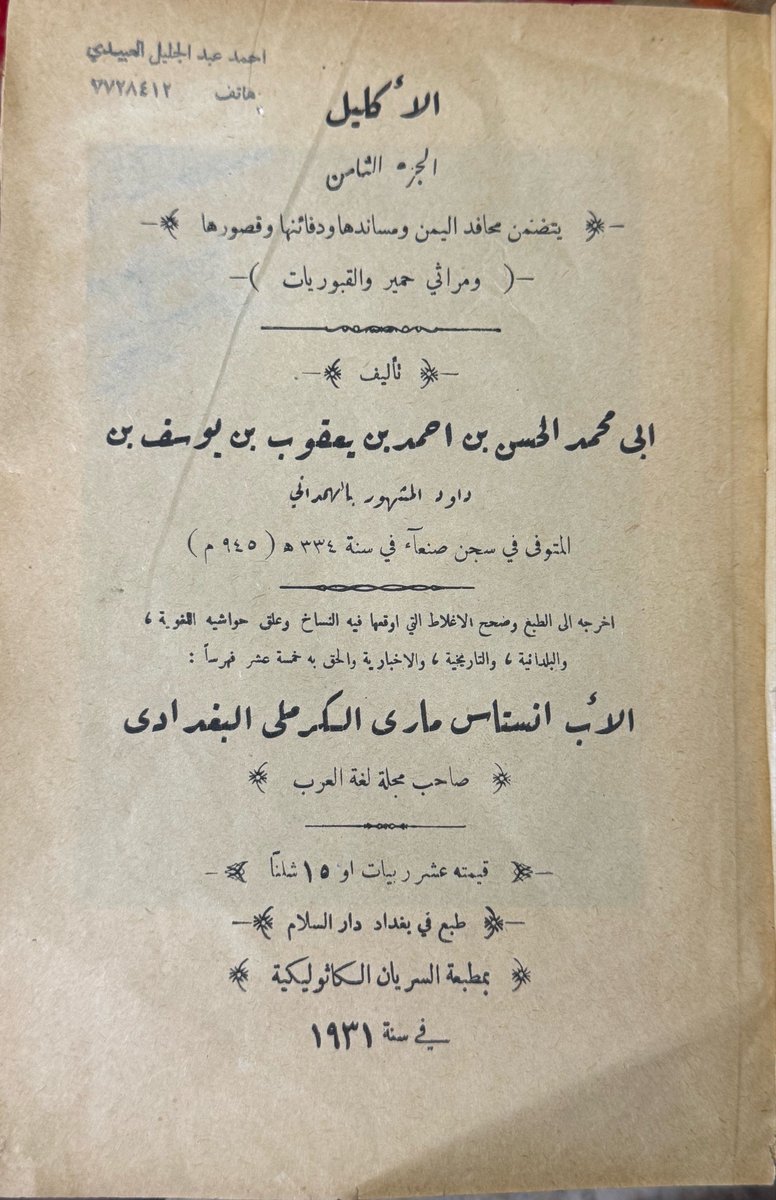 احمد عبد الجليل العبيدي
هاتف ٧٧٢٨٤١٢
الأكليل
الجزء الثامن
يتضمن محافد اليمن ومساندها ودفائنها وقصورها
( ومراثي حمير والقبوريات )
تأليف
ابى محمد الحسن بن احمد بن يعقوب بن يوسف بن
داود المشهور بالهمداني
المتوفى في سجن صنعآء في سنة ٣٣٤ ه ( ٩٤٥ م )
اخرجه الى الطبع وصحح الاغلاط التي اوقعها فيه النساخ وعلق حواشيه اللغوية ،
والبلدانية ، والتاريخية ، والاخبارية والحق به خمسة عشر فهرساً :
الأب انستاس مارى الكرملى البغدادى
صاحب مجلة لغة العرب
قيمته عشر ربيات او ١٥ شلنًا
طبع في بغداد دار السلام
بمطبعة السريان الكاثوليكية
في سنة ١٩٣١